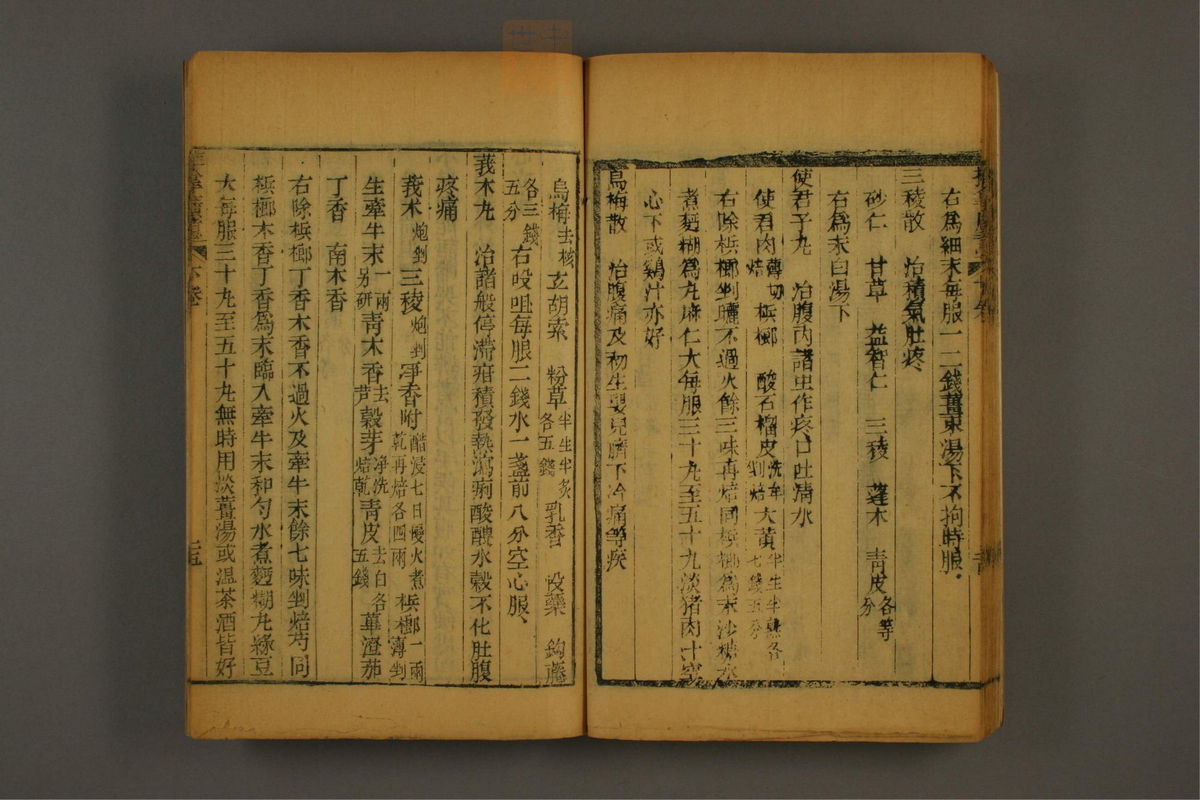 右為細末每服一二錢薑棗湯下不拘時服
三稜散　治積氣肚疼
砂仁　甘草　益智仁　三稜　蓬木　青皮各等分
右為末白湯下
使君子丸　治腹内諸虫作疼口吐清水
使君肉薄切焙　梹榔　酸石榴皮洗剉焙　大黃半生半熟各七錢五分
右除梹榔剉曬不過火餘三味再焙同梹榔為末沙糖水
煮麪糊為丸麻仁大每服三十丸至五十丸淡猪肉汁空
心下或鷄汁亦好
烏梅散　治腹痛及初生嬰兒臍下冷痛等疾
烏梅去核　玄胡索　粉草半生半炙各五錢　乳香　没藥　鈎藤
各三錢五分　右㕮咀每服二錢水一盞前八分空心服
莪木丸　治諸般停滯疳積發熱瀉痢酸醲水穀不化肚腹
疼痛
莪术炮剉　三稜炮剉　淨香附醋浸七日慢火煮乾再焙各四兩　梹榔一兩薄剉
生牽牛末一兩别研　青木香去芦　穀芽淨洗焙乾　青皮去白各五錢　蓽澄茄
丁香　南木香
右除梹榔丁香木香不過火及牽牛末餘七味剉焙芍同
梹榔木香丁香為末臨入牽牛末和勻水煮麪糊丸綠豆
大每服三十丸至五十丸無時用淡薑湯或温茶酒皆好